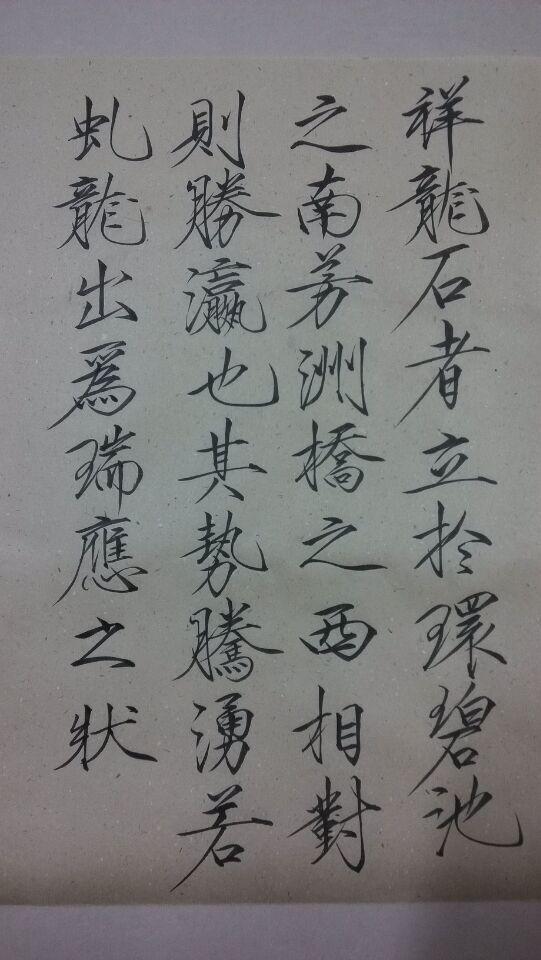 祥龍石者立於環碧池
之南芳洲橋之西相對
則勝瀛也其勢騰湧若
虬龍出為瑞應之狀